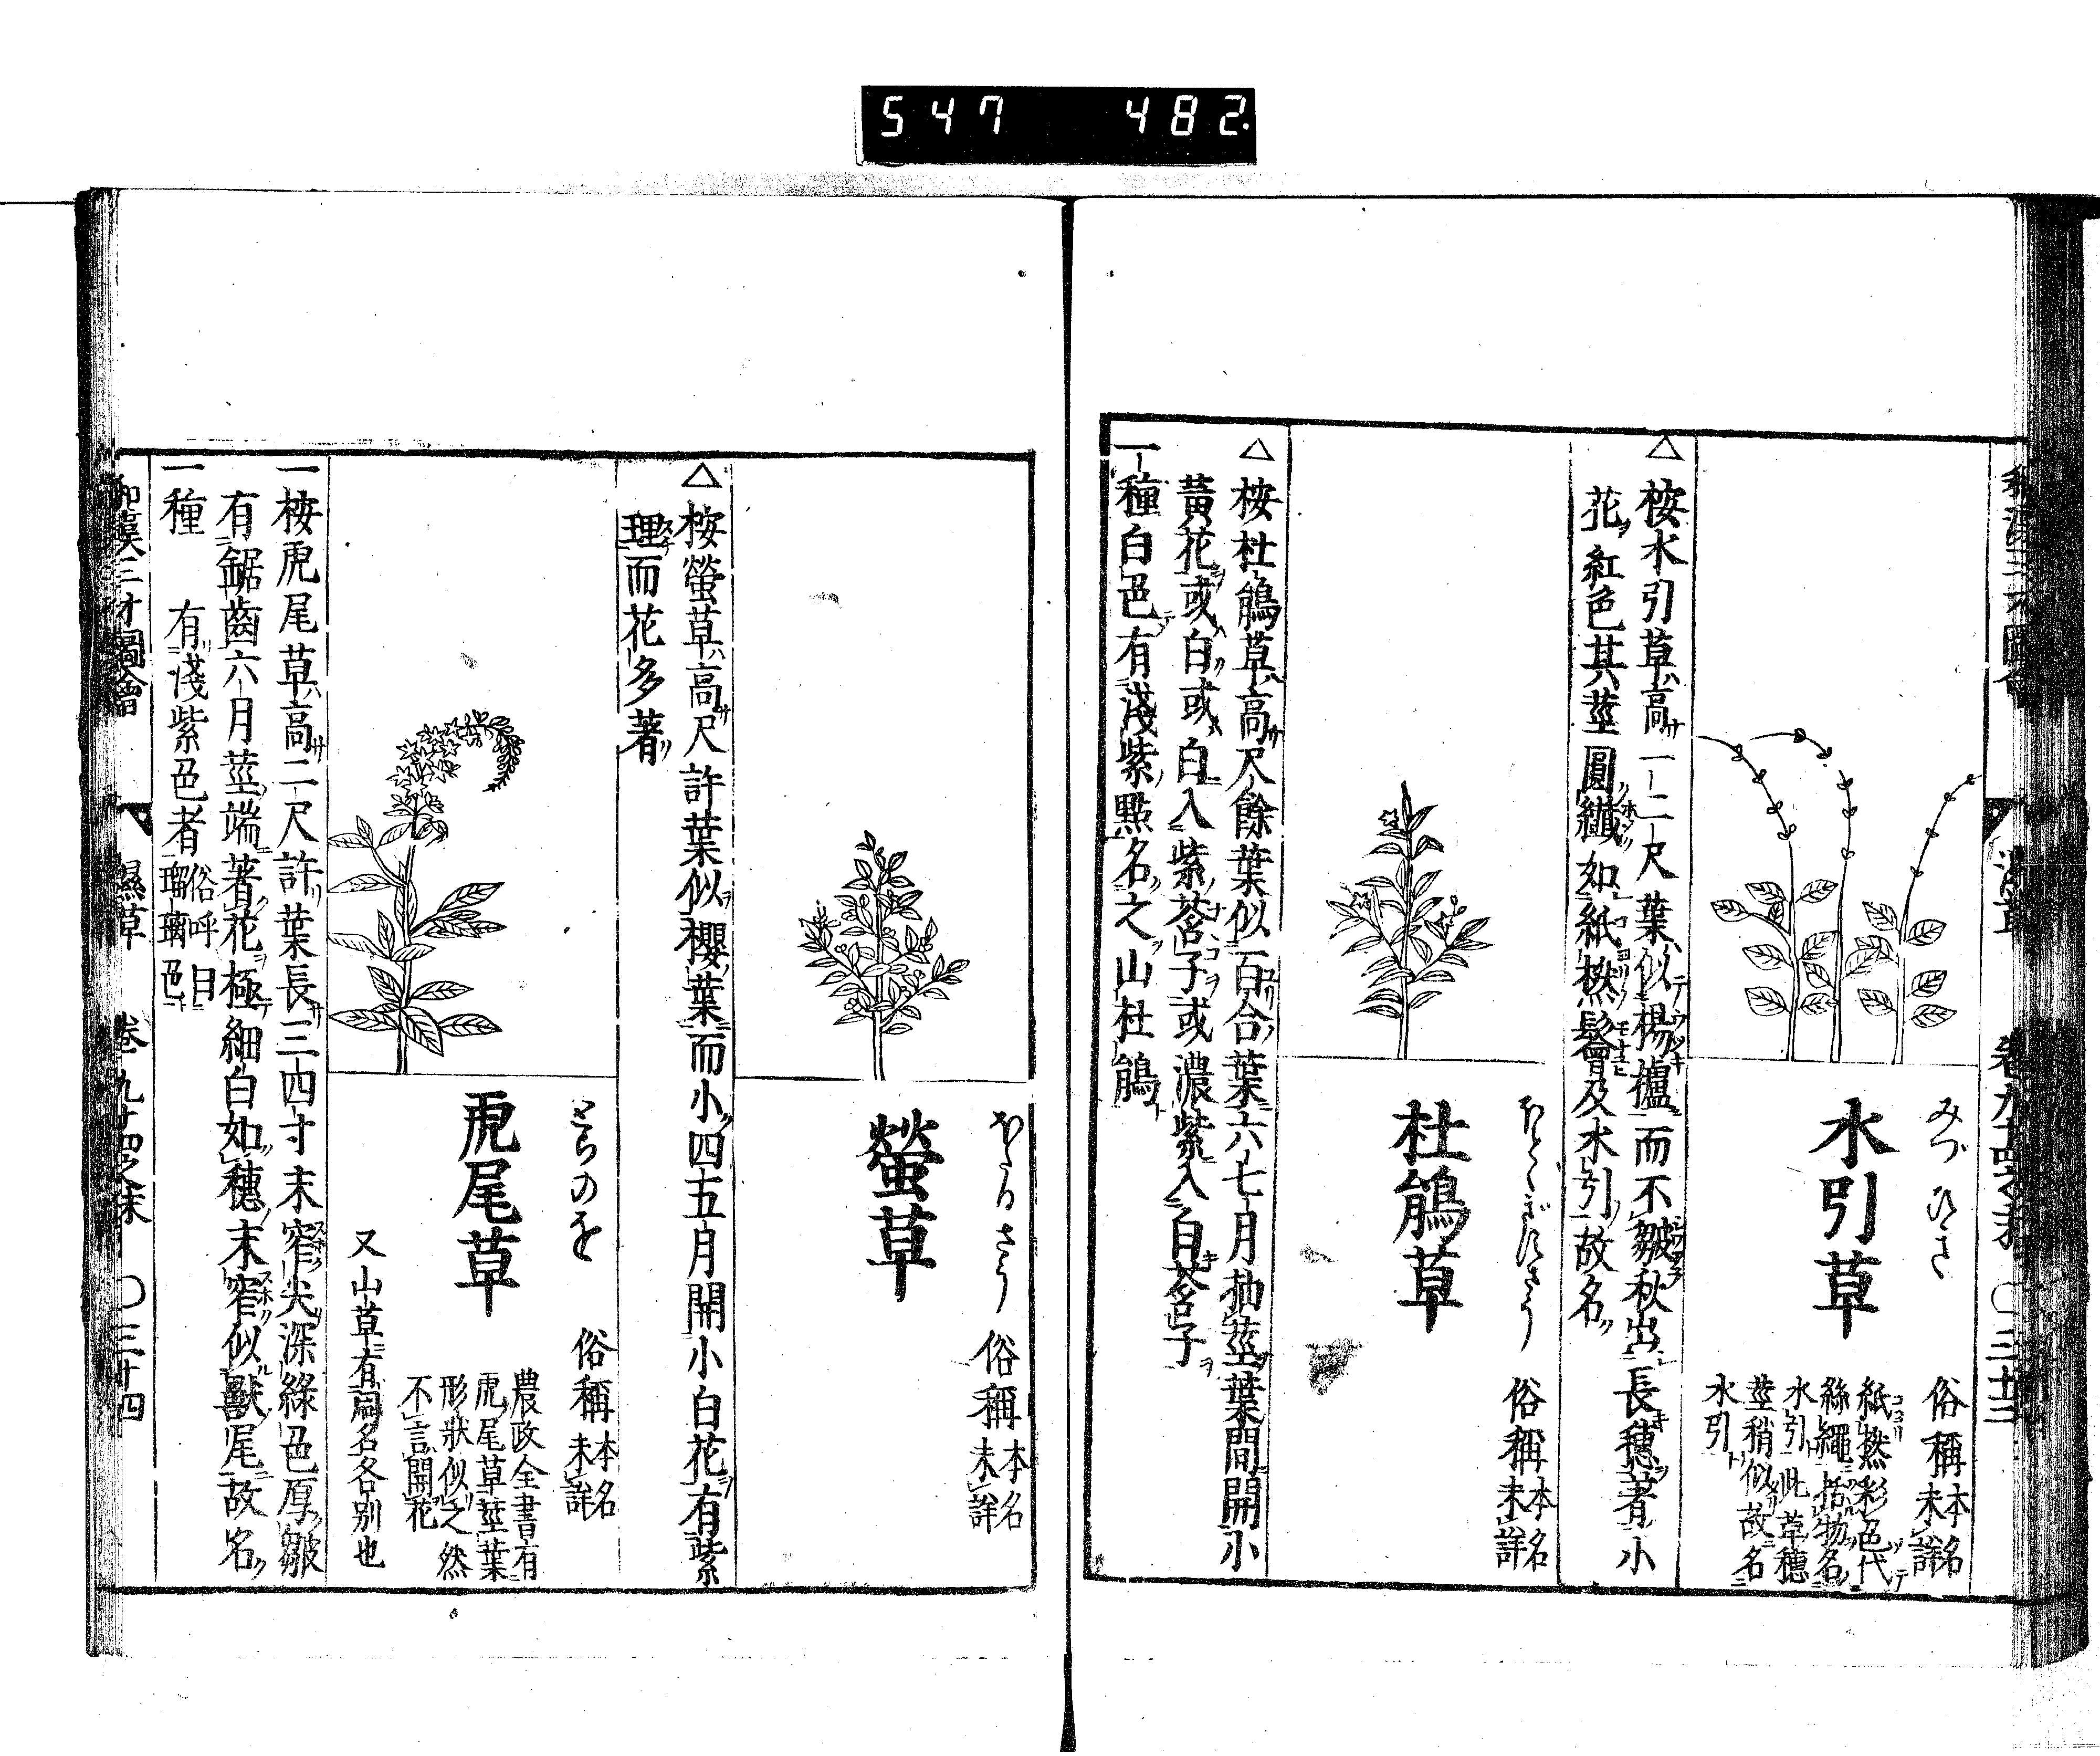 547 482.
みづひき
水引草
俗稱 本名未詳
紙撚彩色代
絲繩括物名
水引此草穗
莖稍似故名
水引
△桉水引草高一二尺葉似楊櫨而不皺秋出長穗著小
花紅色其莖圓纎如紙撚鬠及水引故名
杜鵑草
俗稱 本名未詳
△桉杜鵑草高尺餘葉似百合葉六七月抽莖葉間開小
黃花或白或白入紫荅子或濃紫入白荅子
一種白色有淺紫點名之山杜鵑
ほたるさう
螢草
俗稱 本名未詳
△桉螢草高尺許葉似櫻葉而小四五月開小白花有紫
理而花多著
とらのを
虎尾草
俗稱 本名未詳
農政全書有
虎尾草莖葉
形狀似之然
不言開花
又山草有同名各别也
一桉虎尾草高二尺許葉長三四寸末窄尖深綠色厚皺
有鋸齒六月莖端著花極細白如穗末窄似獸尾故名
一種 有淺紫色者 俗呼曰瑠璃色
和漢三才圖會 濕草 卷九十四之末 〇三十四